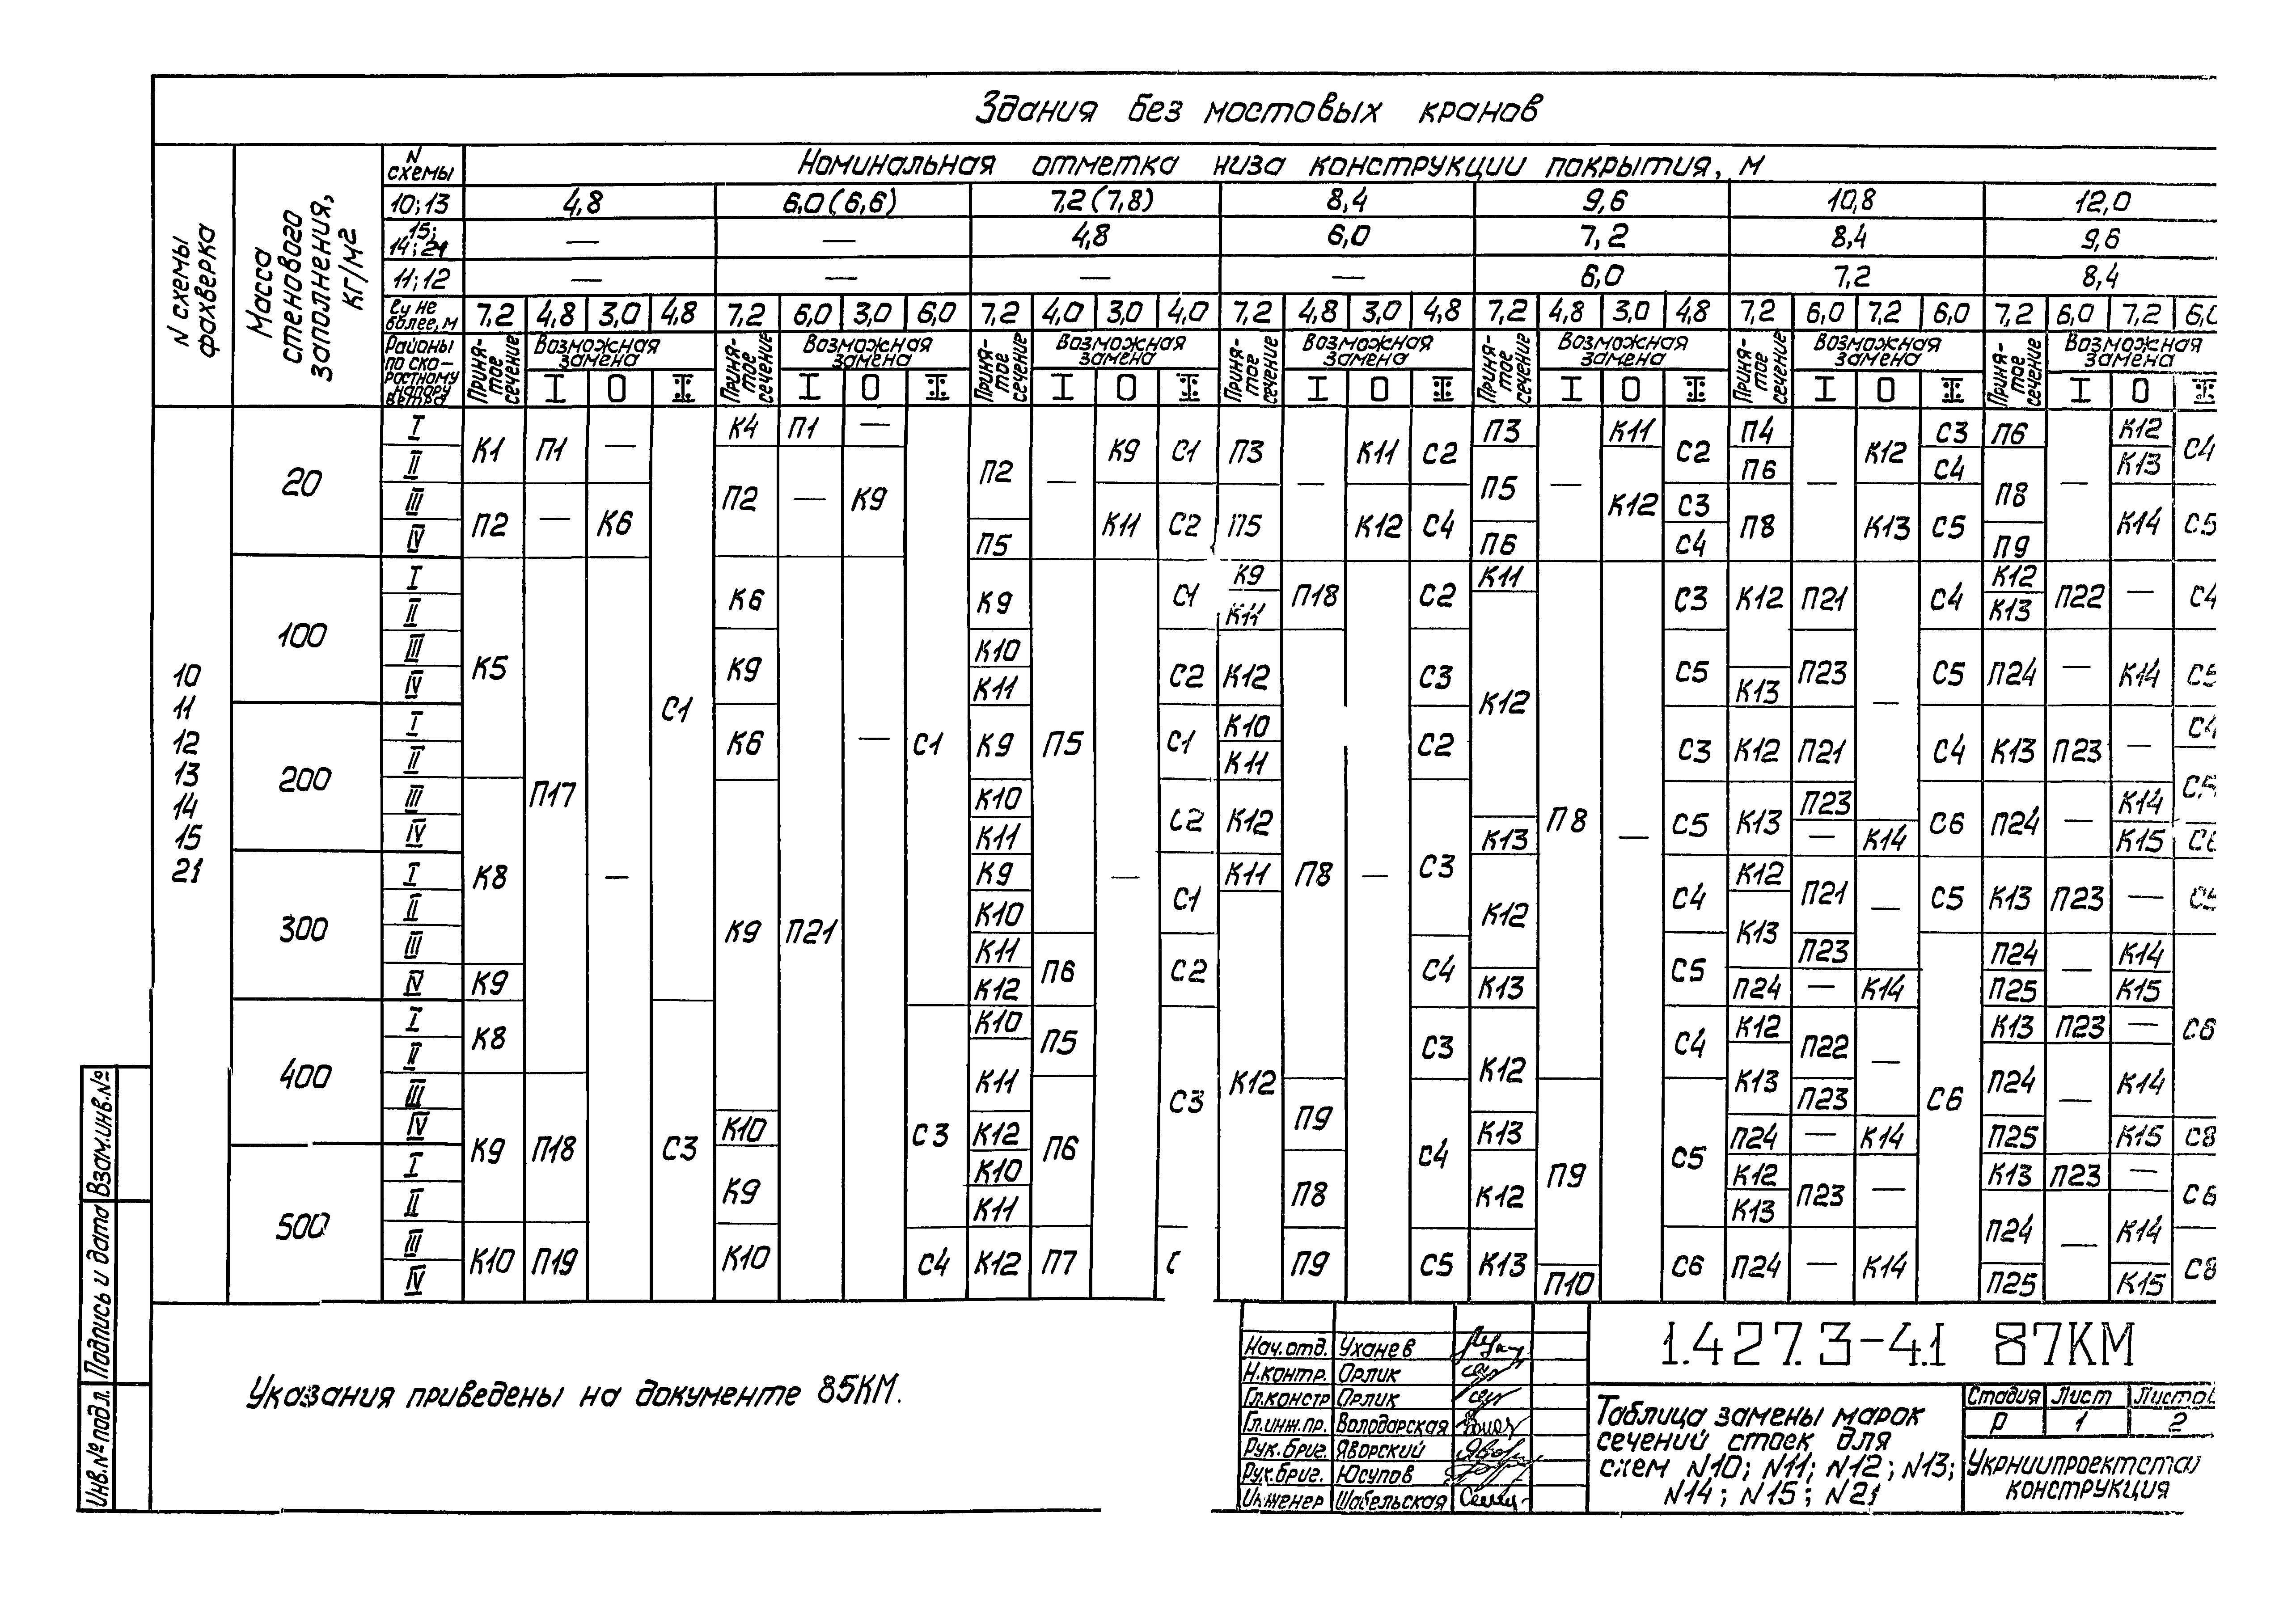 Здания без мостовых кранов
N схемы фахверка
Масса стенового заполнения, кг/м2
N схемы
Номинальная отметка низа конструкции покрытия, м
10; 13 4,8 6,0 (6,6) 7,2 (7,8) 8,4 9,6 10,8 12,0
15; 14; 21 — — 4,8 6,0 7,2 8,4 9,6
11; 12 — — — — 6,0 7,2 8,4
ℓу не более, м 7,2 4,8 3,0 4,8 7,2 6,0 3,0 6,0 7,2 4,0 3,0 4,0 7,2 4,8 3,0 4,8 7,2 4,8 3,0 4,8 7,2 6,0 7,2 6,0 7,2 6,0 7,2 6,0
Районы по скоростному напору ветра
Принятое сечение Возможная замена Принятое сечение Возможная замена Принятое сечение Возможная замена Принятое сечение Возможная замена Принятое сечение Возможная замена Принятое сечение Возможная замена Принятое сечение Возможная замена
10
11
12
13
14
15
21
20
I К4 П1 — П3 К11 П4 С3 П6 К12
II К1 П1 — К9 С1 П3 К11 С2 С2 П6 К12 С4 К13 С4
П2 — К9 П2 — — П5 — К12 — П8 —
III С3
IV П2 — К6 К11 С2 П5 К12 С4 П8 К13 С5 К14 С5
П5 П6 С4 П9
100
I К9 К11 К12
II К6 К9 С1 К11 П18 С2 С3 К12 П21 С4 К13 П22 — С4
III К10
IV К5 К9 К11 С2 К12 С3 С5 К13 П23 С5 П24 — К14 С5
С1 К12 —
200
I К10 С4
II К6 — С1 К9 П5 С1 К11 С2 С3 К12 П21 С4 К13 П23 —
III П17 К10 П23 К14 С5
IV К11 С2 К12 К13 П8 — С5 К13 — К14 С6 П24 — К15 С6
300
I К8 — К9 — К11 П8 — С3 К12
II К9 П21 К10 С1 К12 С4 К13 П21 — С5 К13 П23 — С5
III К11 П23 П24 К14
IV К9 К12 П6 С2 С4 К13 С5 П24 — К14 П25 — К15
400
I К8 К10 П5 С3 С4 К12 П22 — К13 П23 — С6
II К11 К12 К12 К13
III С3 П9 П23 С6 П24 — К14
IV К10 С3 К12 К13 П24 — К14 П25 К15 С8
К9 П18 С3 П6 С4 П9 С5
500
I К10 К12 К13 П23 —
II К9 К11 П8 К12 К13 П23 — С6
III П24 К14
IV К10 П19 К10 С4 К12 П7 П9 С5 К13 С6 П24 — К14 — С8
П10 П25 К15
Указания приведены на документе 85КМ.
Взам.инв.№
Подпись и дата
Инв.№ подл.
Нач.отд. Уханев
Н.контр. Орлик
Гл.констр Орлик
Гл.инж.пр. Володарская
Рук.бриг. Яворский
Рук.бриг. Юсупов
Инженер Шабельская
1.427.3-4.1 87КМ
Таблица замены марок
сечений стоек для
схем N10; N11; N12; N13;
N14; N15; N21
Стадия Лист Листов
Р 1 2
Укрниипроектстал
конструкция